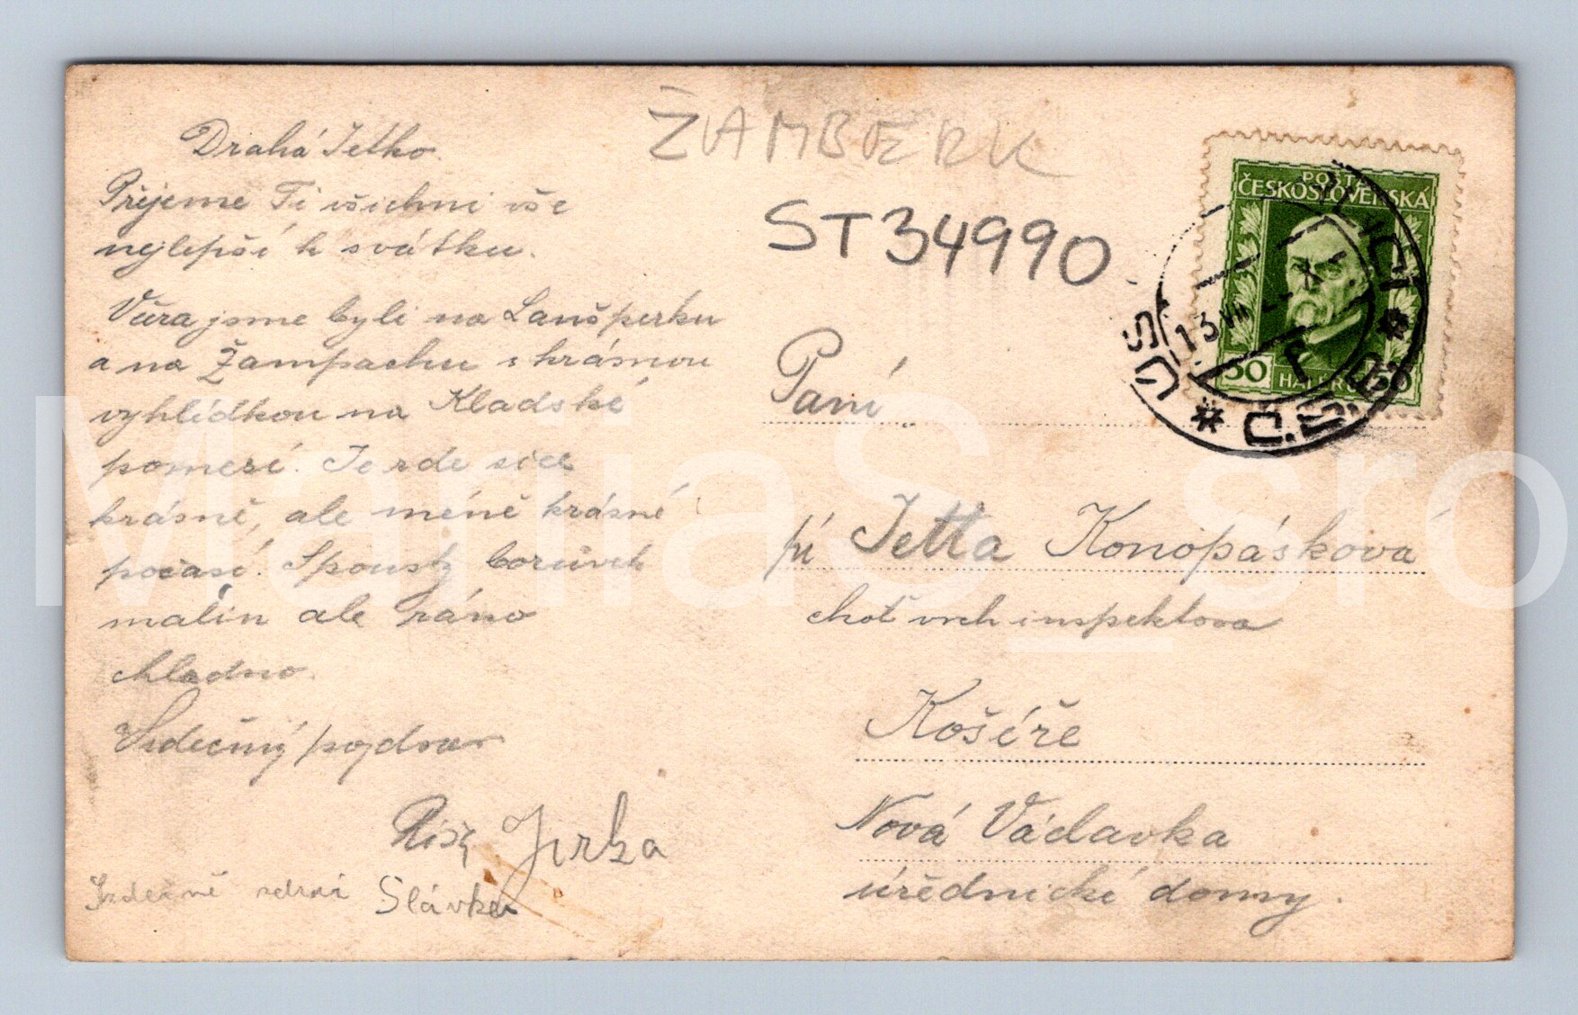 ŽAMBERK
ST34990
Drahá Jetko.
Přejeme Ti všichni vše
nejlepší k svátku.
Včera jsme byli na Lanšperku
a na Žampachu s krásnou
vyhlídkou na Kladské
pomezí. Je zde sice
krásně, ale méně krásné
počasí. Spousty borůvek
malin ale ráno
chladno.
Srdečný pozdrav
Jirka
Srdečně zdraví Slávka
POŠTA
ČESKOSLOVENSKÁ
50 HALÉŘŮ 50
Paní
pí Jetta Konopásková
choť vrch inspektora
Košíře
Nová Václavka
úřednické domy.
MarijaS_sro